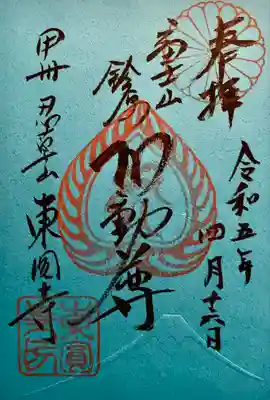 奉拝
令和五年
四月十六日
富士山
不動尊
甲州 忍草山 東圓寺